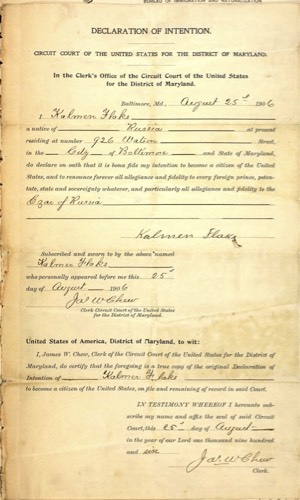 BUREAU OF IMMIGRATION AND NATURALIZATION.
DECLARATION OF INTENTION.
CIRCUIT COURT OF THE UNITED STATES FOR THE DISTRICT OF MARYLAND.
In the Clerk's Office of the Circuit Court of the United States
for the District of Maryland.
Baltimore, Md., August 25th 1906
I, Kalmen Flaks
a native of Russia at present
residing at number 926 Watson Street,
in the City of Baltimore and State of Maryland,
do declare on oath that it is bona fide my intention to become a citizen of the United
States, and to renounce forever all allegiance and fidelity to every foreign prince, poten-
tate, state and sovereignty whatever, and particularly all allegiance and fidelity to the
Czar of Russia
Kalmen Flaks
Subscribed and sworn to by the above named
Kalmen Flaks
who personally appeared before me this 25th
day of August 1906
Jas W Chew
Clerk Circuit Court of the United States
for the District of Maryland.
United States of America, District of Maryland, to wit:
I, James W. Chew, Clerk of the Circuit Court of the United States for the District of
Maryland, do certify that the foregoing is a true copy of the original Declaration of
Intention of Kalmen Flaks
to become a citizen of the United States, on file and remaining of record in said Court.
IN TESTIMONY WHEREOF I hereunto sub-
scribe my name and affix the seal of said Circuit
Court, this 25th day of August
in the year of our Lord one thousand nine hundred
and six
Jas W Chew
Clerk.